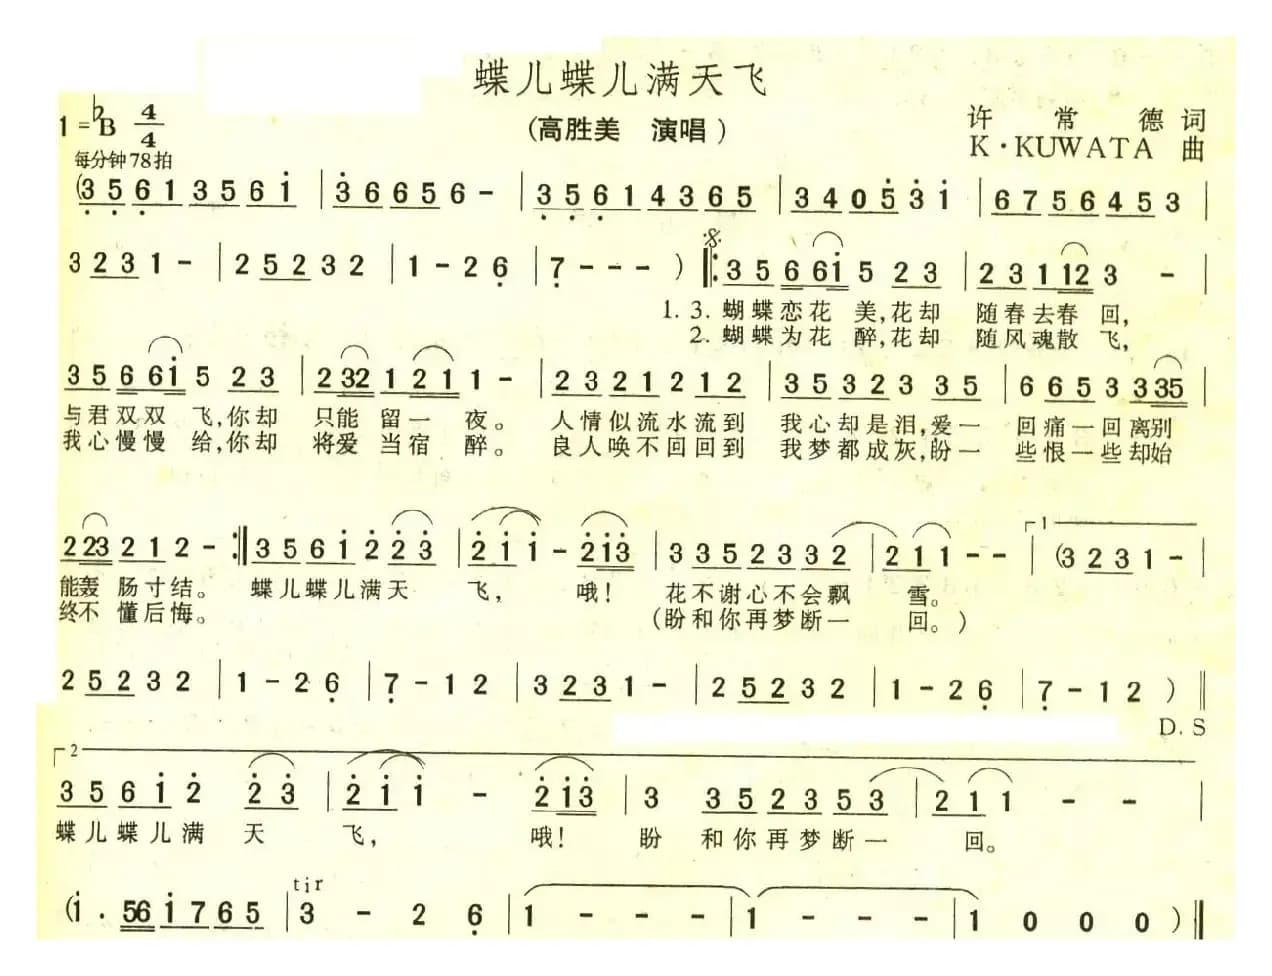 蝶儿蝶儿满天飞
1=♭B 4/4
(高胜美 演唱)
许常德词
每分钟78拍
K·KUWATA 曲
(3 5 6 1 3 5 6 i | 3 6 6 5 6 - | 3 5 6 1 4 3 6 5 | 3 4 0 5 3 i | 6 7 5 6 4 5 3 |
3 2 3 1 - | 2 5 2 3 2 | 1 - 2 6 | 7 - - - ) 𝄋 |: 3 5 6 6 i 5 2 3 | 2 3 1 1 2 3 - |
1. 3. 蝴蝶恋花 美,花却 随春去春 回,
2. 蝴蝶为花 醉,花却 随风魂散 飞,
3 5 6 6 i 5 2 3 | 2 3 2 1 2 1 1 - | 2 3 2 1 2 1 2 | 3 5 3 2 3 3 5 | 6 6 5 3 3 3 5 |
与君双双 飞,你却 只能 留一 夜。 人情似流水流到 我心却是泪,爱一 回痛一回离别
我心慢慢 给,你却 将爱 当宿 醉。 良人唤不回回到 我梦都成灰,盼一 些恨一些却始
2 2 3 2 1 2 - :| 3 5 6 i 2 2 3 | 2 i i - 2 i 3 | 3 3 5 2 3 3 2 | 2 1 1 - - | 1 (3 2 3 1 - |
能轰 肠寸结。 蝶儿蝶儿满天 飞, 哦! 花不谢心不会飘 雪。
终不 懂后悔。 (盼和你再梦断一 回。)
2 5 2 3 2 | 1 - 2 6 | 7 - 1 2 | 3 2 3 1 - | 2 5 2 3 2 | 1 - 2 6 | 7 - 1 2 ) ‖
D. S
2
3 5 6 i 2 2 3 | 2 i i - 2 i 3 | 3 3 5 2 3 5 3 | 2 1 1 - - |
蝶儿蝶儿满 天 飞, 哦! 盼 和你再梦断一 回。
tir
(i · 5 6 i 7 6 5 | 3 - 2 6 | 1 - - - | 1 - - - | 1 0 0 0 ) ‖